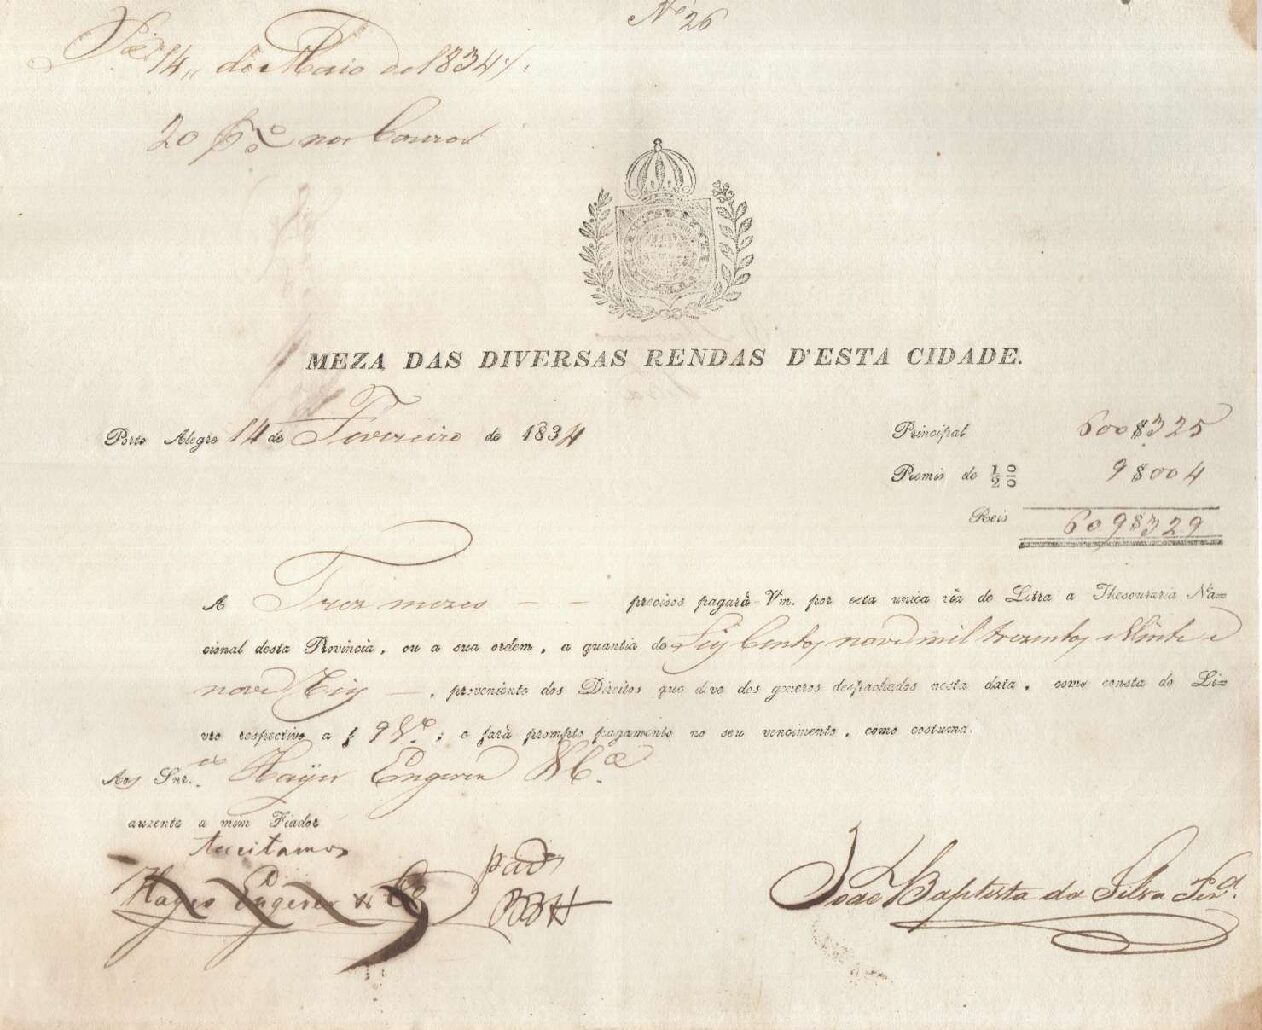 Nº 26
14 de Maio de 1834
20 p% nos Couros
MEZA DAS DIVERSAS RENDAS D'ESTA CIDADE.
Porto Alegre 14 de Fevereiro de 1834
Principal 600$325
Premio de ½ % 9$004
Reis 609$329
A Trez mezes — — precisos pagará Vm. por esta unica via de Letra a Thesouraria Na=
cional desta Provincia, ou a sua ordem, a quantia de Seis Centos nove mil trezentos e Vinte e
nove Reis —, proveniente dos Direitos que deve dos generos despachados nesta data, como consta do Li=
vro respectivo a f 9; e fará prompto pagamento no seu vencimento, como costuma.
Aos Snr.es Hayes Engerer & Cª
auzente a mim Fiador
Aceitamos
Hayes Engerer & Co
João Baptista da Silva Perª